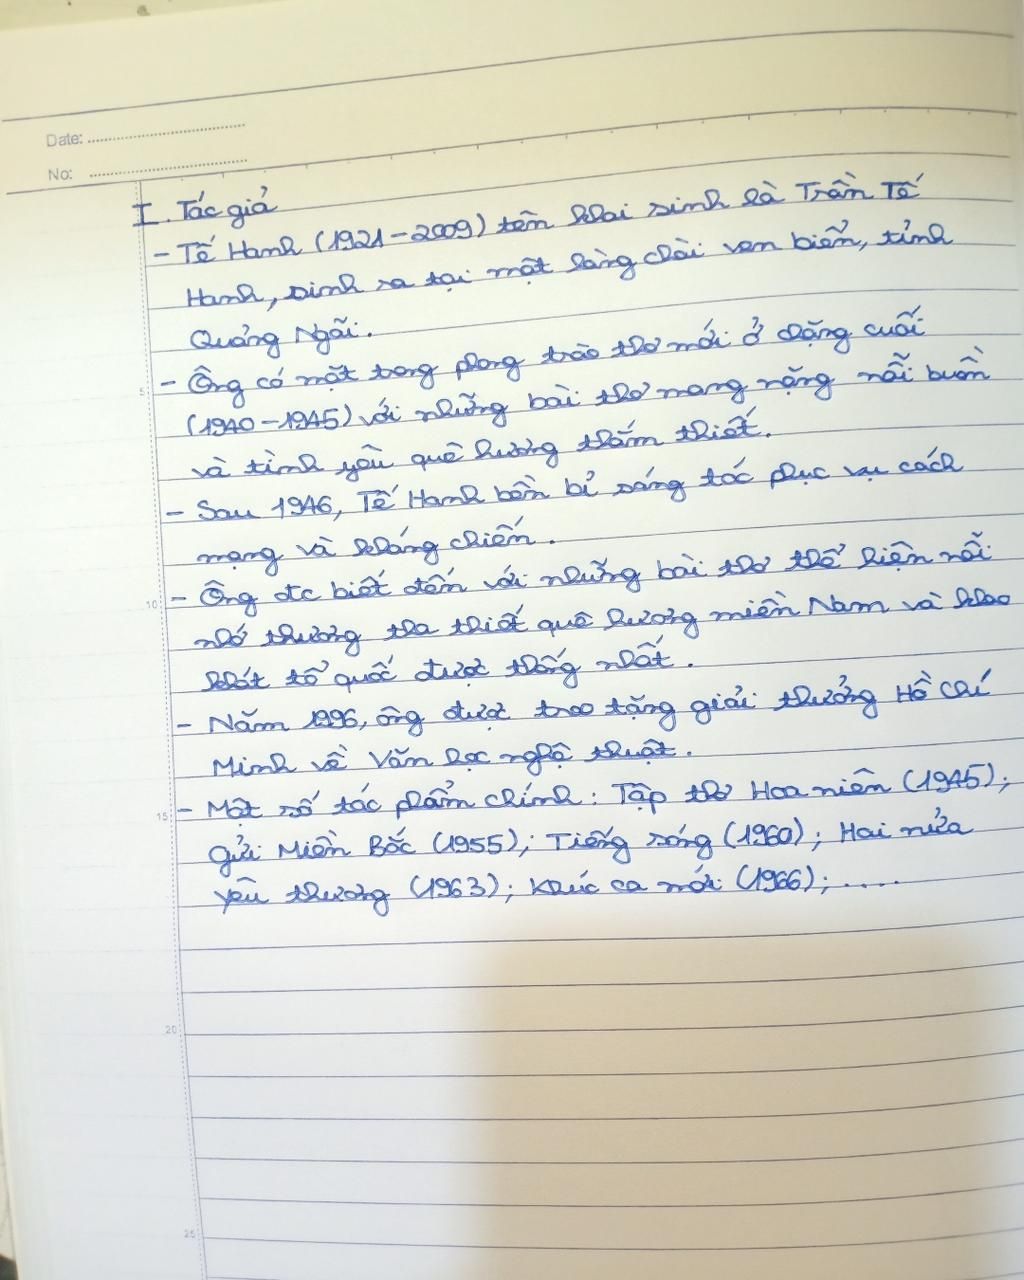 Date:
No:
I. Tác giả
- Tế Hanh (1921-2009) tên khai sinh là Trần Tế
Hanh, sinh ra tại một làng chài ven biển, tỉnh
Quảng Ngãi.
- Ông có mặt trong phong trào thơ mới ở chặng cuối
5
(1940-1945) với những bài thơ mang nặng nỗi buồn
và tình yêu quê hương thắm thiết.
- Sau 1946, Tế Hanh bền bỉ sáng tác phục vụ cách
mạng và kháng chiến.
- Ông đc biết đến với những bài thơ thể hiện nỗi
10
nhớ thương tha thiết quê hương miền Nam và khao
khát tổ quốc được thống nhất.
- Năm 1996, ông được trao tặng giải thưởng Hồ Chí
Minh về Văn học nghệ thuật.
- Một số tác phẩm chính: Tập thơ Hoa niên (1945);
15
gửi Miền Bắc (1955); Tiếng sóng (1960); Hai nửa
yêu thương (1963); Khúc ca mới (1966); ....
20
25